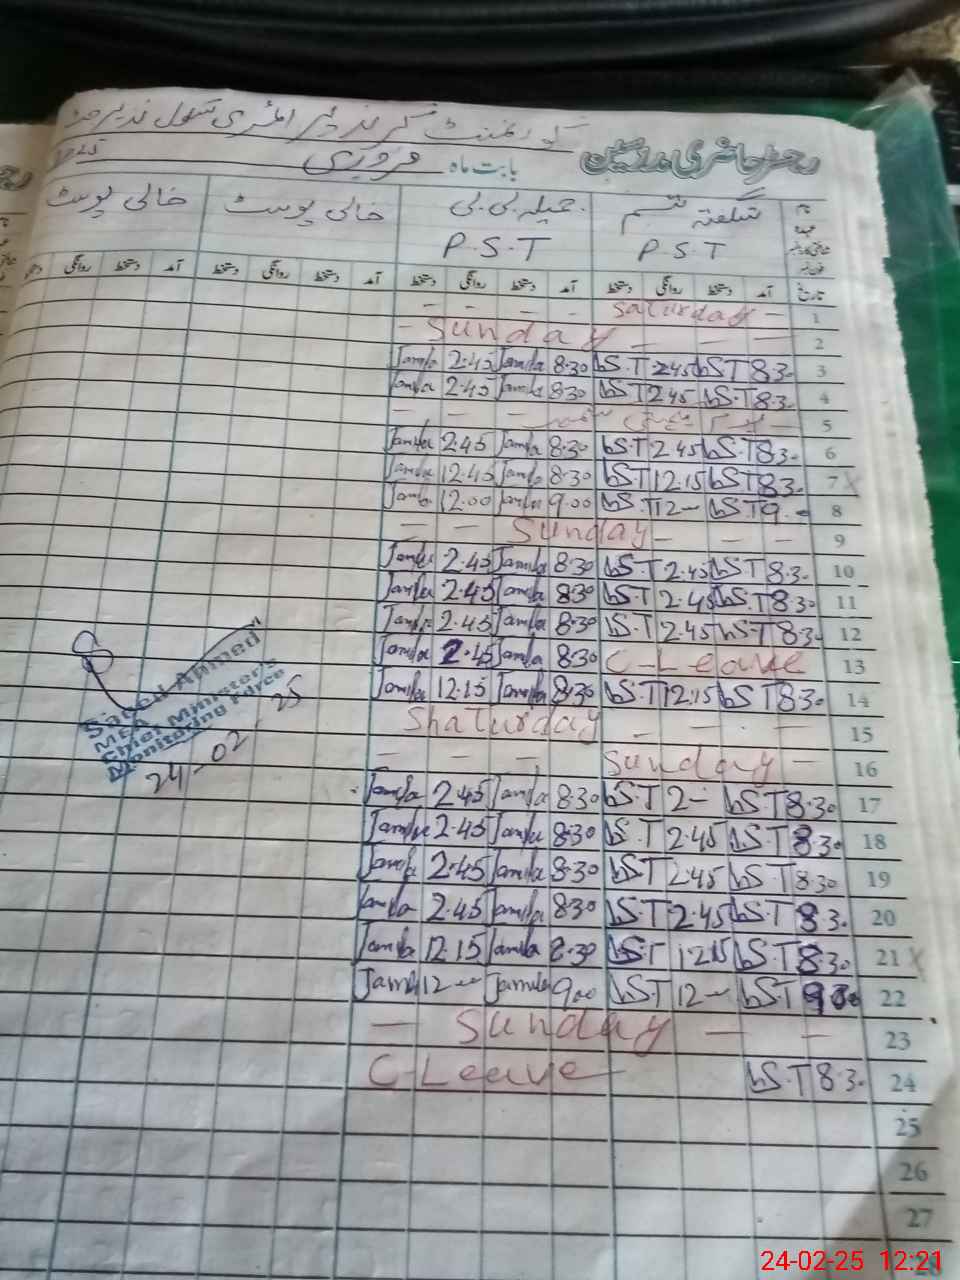 گورنمنٹ گرلز پرائمری سکول
رجسٹر حاضری مدرسین بابت ماہ فروری
نام شگفتہ تبسم جمیلہ بی بی خالی پوسٹ خالی پوسٹ
عہدہ P.S.T P.S.T
تاریخ آمد دستخط روانگی دستخط آمد دستخط روانگی دستخط آمد دستخط روانگی دستخط آمد دستخط روانگی
1 Saturday
2 Sunday
3 8.30 bS.T 2.45 bS.T 8.30 Jamila 2.45 Jamila
4 8.30 bS.T 2.45 bS.T 8.30 Jamila 2.45 Jamila
5
6 8.30 bS.T 2.45 bS.T 8.30 Jamila 2.45 Jamila
7 8.30 bS.T 12.15 bS.T 8.30 Jamila 12.45 Jamila
8 9.00 bS.T 12 bS.T 9.00 Jamila 12.00 Jamila
9 Sunday
10 8.30 bS.T 2.45 bS.T 8.30 Jamila 2.45 Jamila
11 8.30 bS.T 2.45 bS.T 8.30 Jamila 2.45 Jamila
12 8.30 bS.T 2.45 bS.T 8.30 Jamila 2.45 Jamila
13 C-Leave 8.30 Jamila 2.45 Jamila
14 8.30 bS.T 12.15 bS.T 8.30 Jamila 12.15 Jamila
15 Shaturday
16 Sunday
17 8.30 bS.T 2- bS.T 8.30 Jamila 2.45 Jamila
18 8.30 bS.T 2.45 bS.T 8.30 Jamila 2.45 Jamila
19 8.30 bS.T 2.45 bS.T 8.30 Jamila 2.45 Jamila
20 8.30 bS.T 2.45 bS.T 8.30 Jamila 2.45 Jamila
21 8.30 bS.T 12.15 bS.T 8.30 Jamila 12.15 Jamila
22 9.00 bS.T 12- bS.T 9.00 Jamila 12- Jamila
23 Sunday
24 8.30 bS.T C-Leave
25
26
27
28
Saeed Ahmed
MEA
Chief Minister's
Monitoring Force
24-02-25
24-02-25 12:21